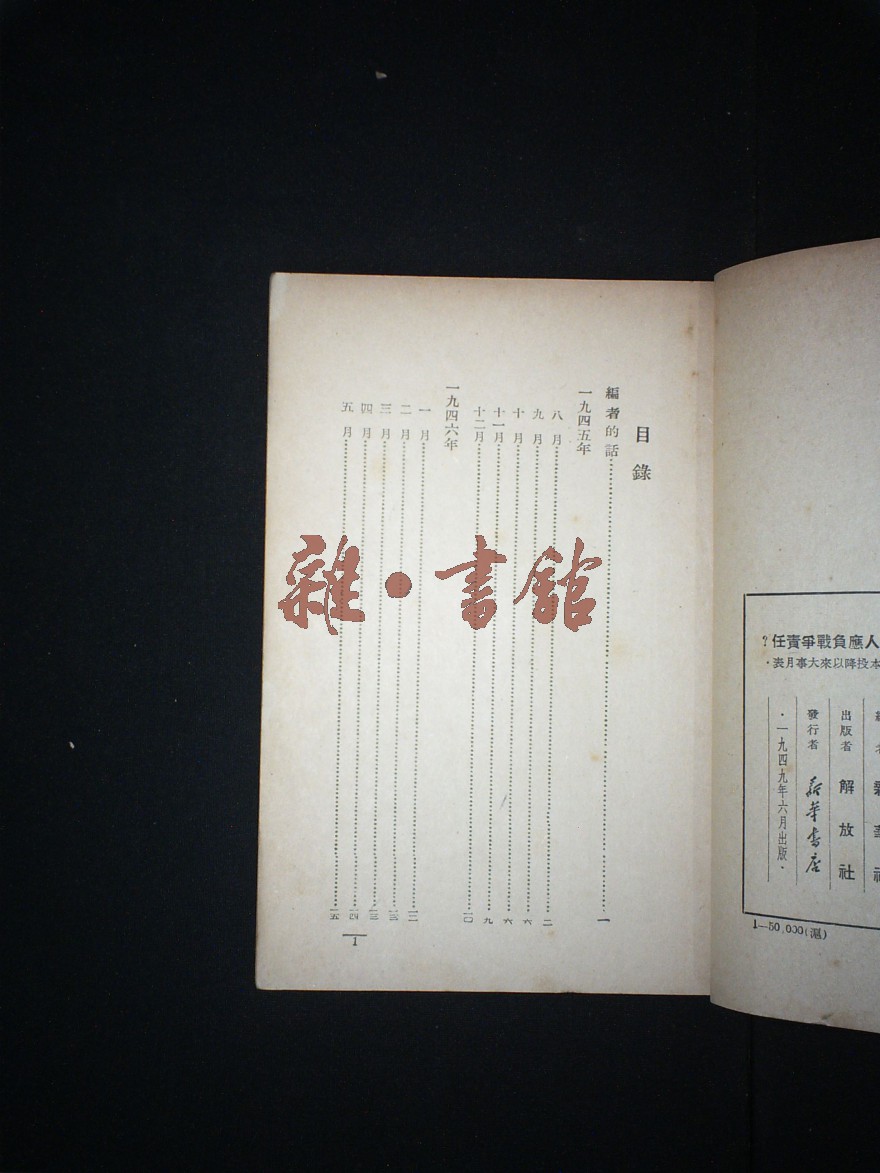 人應負戰爭責任？
本投降以來大事月表·
出版者 解放社
發行者 新華書店
·一九四九年六月出版·
1—50,000(滬)
目錄
編者的話 一
一九四五年
八月 二
九月 六
十月 六
十一月 九
十二月 一〇
一九四六年
一月 一二
二月 一三
三月 一三
四月 一四
五月 一五
1
雜·書館